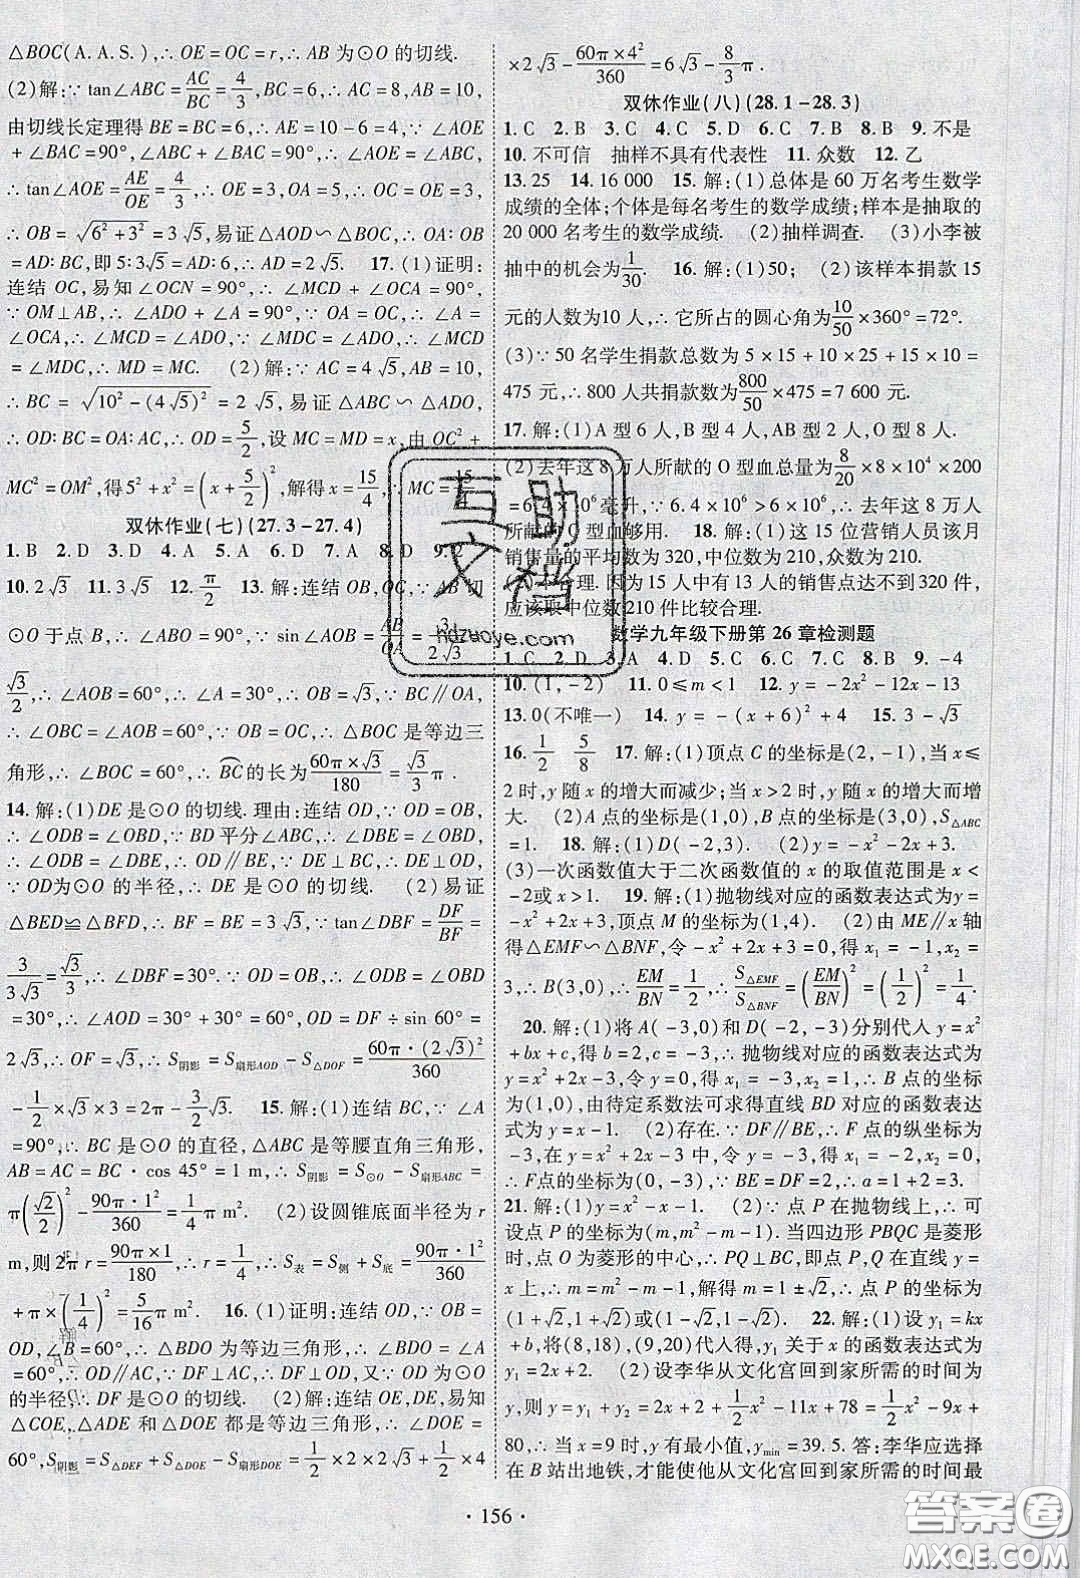 △BOC(A.A.S.),∴OE=OC=r,∴AB为⊙O的切线.
(2)解:∵tan∠ABC=AC/BC=4/3,BC=6,∴AC=8,AB=10,
由切线长定理得BE=BC=6,∴AE=10-6=4,∵∠AOE
+∠BAC=90°,∠ABC+∠BAC=90°,∴∠AOE=∠ABC,
∴tan∠AOE=AE/OE=4/3,∴OE=3,OA=5,∴OC=OE=3,
∴OB=√(6²+3²)=3√5,易证△AOD∽△BOC,∴OA∶OB
=AD∶BC,即5∶3√5=AD∶6,∴AD=2√5. 17.(1)证明:
连结OC,易知∠OCN=90°,∴∠MCD+∠OCA=90°,
∵OM⊥AB,∴∠ADO+∠A=90°,∵OA=OC,∴∠A=
∠OCA,∴∠MCD=∠ADO,∵∠ADO=∠MDC,∴∠MCD
=∠MDC,∴MD=MC. (2)解:∵AC=4√5,AB=10,
∴BC=√(10²-(4√5)²)=2√5,易证△ABC∽△ADO,
∴OD∶BC=OA∶AC,∴OD=5/2,设MC=MD=x,由OC²+
MC²=OM²,得5²+x²=(x+5/2)²,解得x=15/4,∴MC=15/4.
双休作业(七)(27.3-27.4)
1.B 2.D 3.D 4.A 5.A 6.D 7.A 8.D 9.D
10.2√3 11.3√5 12.π/2 13.解:连结OB,OC,∵AB切
⊙O于点B,∴∠ABO=90°,∵sin∠AOB=AB/OA=3/2√3=
√3/2,∴∠AOB=60°,∴∠A=30°,∴OB=√3,∵BC∥OA,
∴∠OBC=∠AOB=60°,∵OB=OC,∴△BOC是等边三
角形,∴∠BOC=60°,∴BC的长为60π×√3/180=√3/3π.
14.解:(1)DE是⊙O的切线.理由:连结OD,∵OD=OB,
∴∠ODB=∠OBD,∵BD平分∠ABC,∴∠DBE=∠OBD,
∴∠ODB=∠DBE,∴OD∥BE,∵DE⊥BC,∴DE⊥OD,
∵OD为⊙O的半径,∴DE是⊙O的切线. (2)易证
△BED≌△BFD,∴BF=BE=3√3,∵tan∠DBF=DF/BF=
3/3√3=√3/3,∴∠DBF=30°.∵OD=OB,∴∠ODB=∠OBD
=30°,∴∠AOD=30°+30°=60°,∴OD=DF÷sin 60°=
2√3.∴OF=√3,∴S阴影=S扇形AOD-S△DOF=60π·(2√3)²/360
-1/2×√3×3=2π-3/2√3. 15.解:(1)连结BC,∵∠A
=90°,∴BC是⊙O的直径,△ABC是等腰直角三角形,
AB=AC=BC·cos 45°=1 m,∴S阴影=S⊙O-S扇形ABC=
π(√2/2)²-90π·1²/360=1/4π m². (2)设圆锥底面半径为r
m,则2πr=90π×1/180,∴r=1/4,∴S表=S侧+S底=90π·1²/360
+π×(1/4)²=5/16π m². 16.(1)证明:连结OD,∵OB=
OD,∠B=60°,∴△BDO为等边三角形,∴∠BDO=∠A
=60°,∴OD∥AC,∵DF⊥AC,∴DF⊥OD,又∵OD为⊙O
的半径,∴DF是⊙O的切线. (2)解:连结OE,DE,易知
△COE,△ADE和△DOE都是等边三角形,∴∠DOE=
60°,S阴影=S△DEF+S△DOE-S扇形DOE=1/2×2×2√3+1/2×4
×2√3-60π×4²/360=6√3-8/3π.
双休作业(八)(28.1-28.3)
1.C 2.B 3.C 4.C 5.D 6.C 7.B 8.B 9.不是
10.不可信 抽样不具有代表性 11.众数 12.乙
13.25 14.16 000 15.解:(1)总体是60万名考生数学
成绩的全体;个体是每名考生的数学成绩;样本是抽取的
20 000名考生的数学成绩. (2)抽样调查. (3)小李被
抽中的机会为1/30. 16.解:(1)50; (2)该样本捐款15
元的人数为10人,∴它所占的圆心角为10/50×360°=72°.
(3)∵50名学生捐款总数为5×15+10×25+15×10=
475元,∴800人共捐款数为800/50×475=7 600元.
17.解:(1)A型6人,B型4人,AB型2人,O型8人.
(2)去年这8万人所献的O型血总量为8/20×8×10⁴×200
=6.4×10⁶毫升,∵6.4×10⁶>6×10⁶,∴去年这8万人
所献的O型血够用. 18.解:(1)这15位营销人员该月
销售量的平均数为320,中位数为210,众数为210.
(2)不合理.因为15人中有13人的销售点达不到320件,
应该取中位数210件比较合理.
数学九年级下册第26章检测题
1.C 2.D 3.A 4.D 5.A 6.B 7.C 8.B 9.-4
10.(1,-2) 11.0≤m<1 12.y=-2x²-12x-13
13.0(不唯一) 14.y=-(x+6)²+4 15.3-√3
16.1/2 5/8 17.解:(1)顶点C的坐标是(2,-1),当x≤
2时,y随x的增大而减少;当x>2时,y随x的增大而增
大. (2)A点的坐标是(1,0),B点的坐标是(3,0),S△ABC
=1. 18.解:(1)D(-2,3). (2)y=-x²-2x+3.
(3)一次函数值大于二次函数值的x的取值范围是x<
-2或x>1. 19.解:(1)抛物线对应的函数表达式为y=
-x²+2x+3,顶点M的坐标为(1,4). (2)由ME∥x轴
得△EMF∽△BNF,令-x²+2x+3=0,得x₁=-1,x₂=
3,∴B(3,0),∴EM/BN=1/2,∴S△EMF/S△BNF=(EM/BN)²=(1/2)²=1/4.
20.解:(1)将A(-3,0)和D(-2,-3)分别代入y=x²
+bx+c,得b=2,c=-3,∴抛物线对应的函数表达式为
y=x²+2x-3,由x²+2x-3=0,得x₁=-3,x₂=1,∴B点的坐标
为(1,0),由待定系数法可求得直线BD对应的函数表达
式为y=x-1. (2)存在.∵DF∥BE,∴F点的纵坐标为
-3,在y=x²+2x-3中,令y=-3,得x₁=0,x₂=-2,
∴F点的坐标为(0,-3),∵BE=DF=2,∴a=1+2=3.
21.解:(1)y=x²-x-1. (2)∵点P在抛物线上,∴可
设点P的坐标为(m,m²-m-1).当四边形PBQC是菱形
时,点O为菱形的中心,∴PQ⊥BC,即点P,Q在直线y=
x上,∴m=m²-m-1,解得m=1±√2,∴点P的坐标为
(1+√2,1+√2)或(1-√2,1-√2). 22.解:(1)设y₁=kx
+b,将(8,18),(9,20)代入得,y₁关于x的函数表达式为
y₁=2x+2. (2)设李华从文化宫回到家所需的时间为
y,则y=y₁+y₂=2x+2+1/2x²-11x+78=1/2x²-9x+
80,∴当x=9时,y有最小值,ymin=39.5.答:李华应选择
在B站出地铁,才能使他从文化宫回到家所需的时间最
·156·
互助文档
hdzuoye.com
答案圈
MXQE.COM